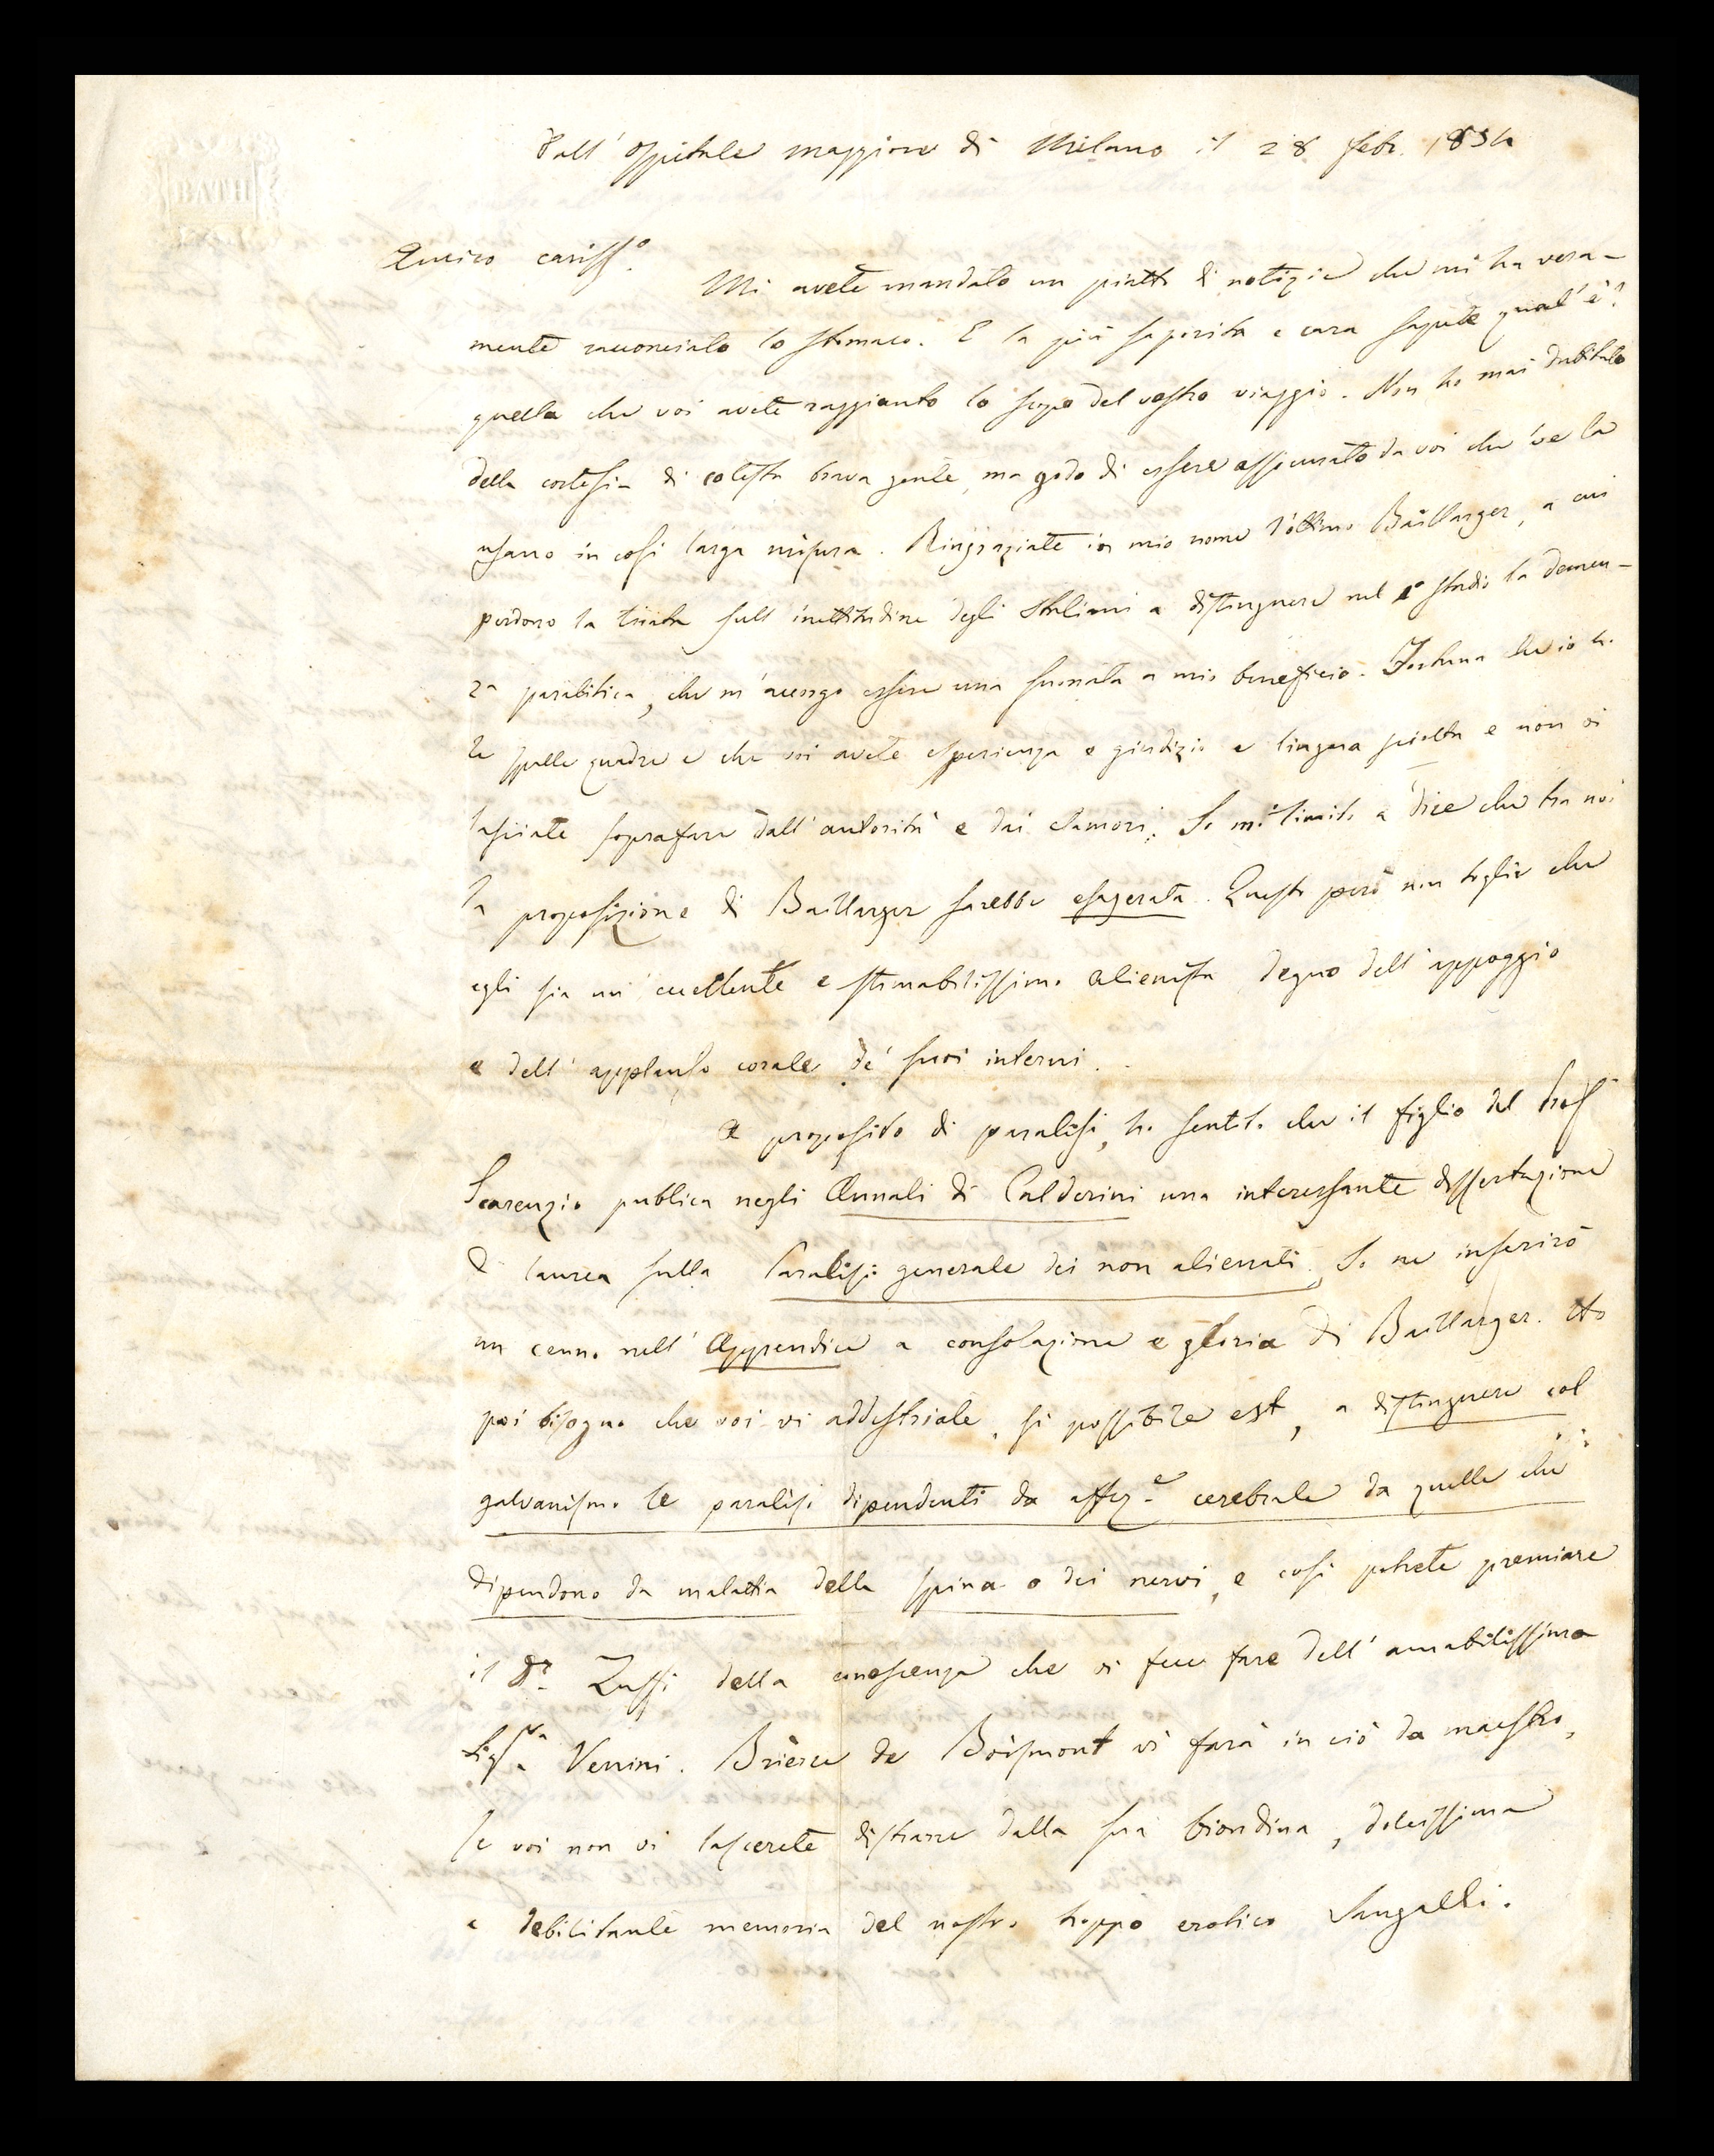 Dall' Ospitale maggiore di Milano il 28 febr. 1854
Amico cariss.o
Mi avete mandato un piatto di notizie che mi ha vera-
mente racconciato lo stomaco. E la più saporita e cara sapete qual'è?
quella che voi avete raggiunto lo scopo del vostro viaggio. Non ho mai dubitato
della cortesia di cotesta brava gente, ma godo di essere assicurato da voi che ve la
usano in così larga misura. Ringraziate in mio nome l'ottimo Baillarger, a cui
perdono la tirata sull'inettitudine degli Italiani a distinguere nel 1o stadio la demen-
za paralitica, che m'accorgo essere una suonata a mio beneficio. Fortuna che io ho
le spalle quadre e che voi avete esperienza e giudizio e lingua sciolta e non vi
lasciate soprafare dall'autorità e dai clamori. Io mi limito a dire che tra noi
la proposizione di Baillarger sarebbe esagerata. Questo però non toglie che
egli sia un' eccellente e stimabilissimo alienista degno dell'appoggio
e dell'applauso corale de' suoi interni.
A proposito di paralisi, ho sentito che il figlio del Prof
Scarenzio publica negli Annali di Calderini una interessante dissertazione
di laurea sulla Paralisi generale dei non alienati. Io ne inserirò
un cenno nell' Appendice a consolazione e gloria di Baillarger. Ho
poi bisogno che voi vi addestriate, si possibile est, a distinguere col
galvanismo le paralisi dipendenti da affez.e cerebrale da quelle che
dipendono da malattia della spina o dei nervi, e così potrete premiare
il Dr. Zuffi della conoscenza che vi fece fare dell'amabilissima
Sig.ra Verrini. Brierre de Boismont vi farà in ciò da maestro,
se voi non vi lascerete distrarre dalla sua biondina, dolcissima
e debilitante memoria del nostro troppo erotico Sangalli.